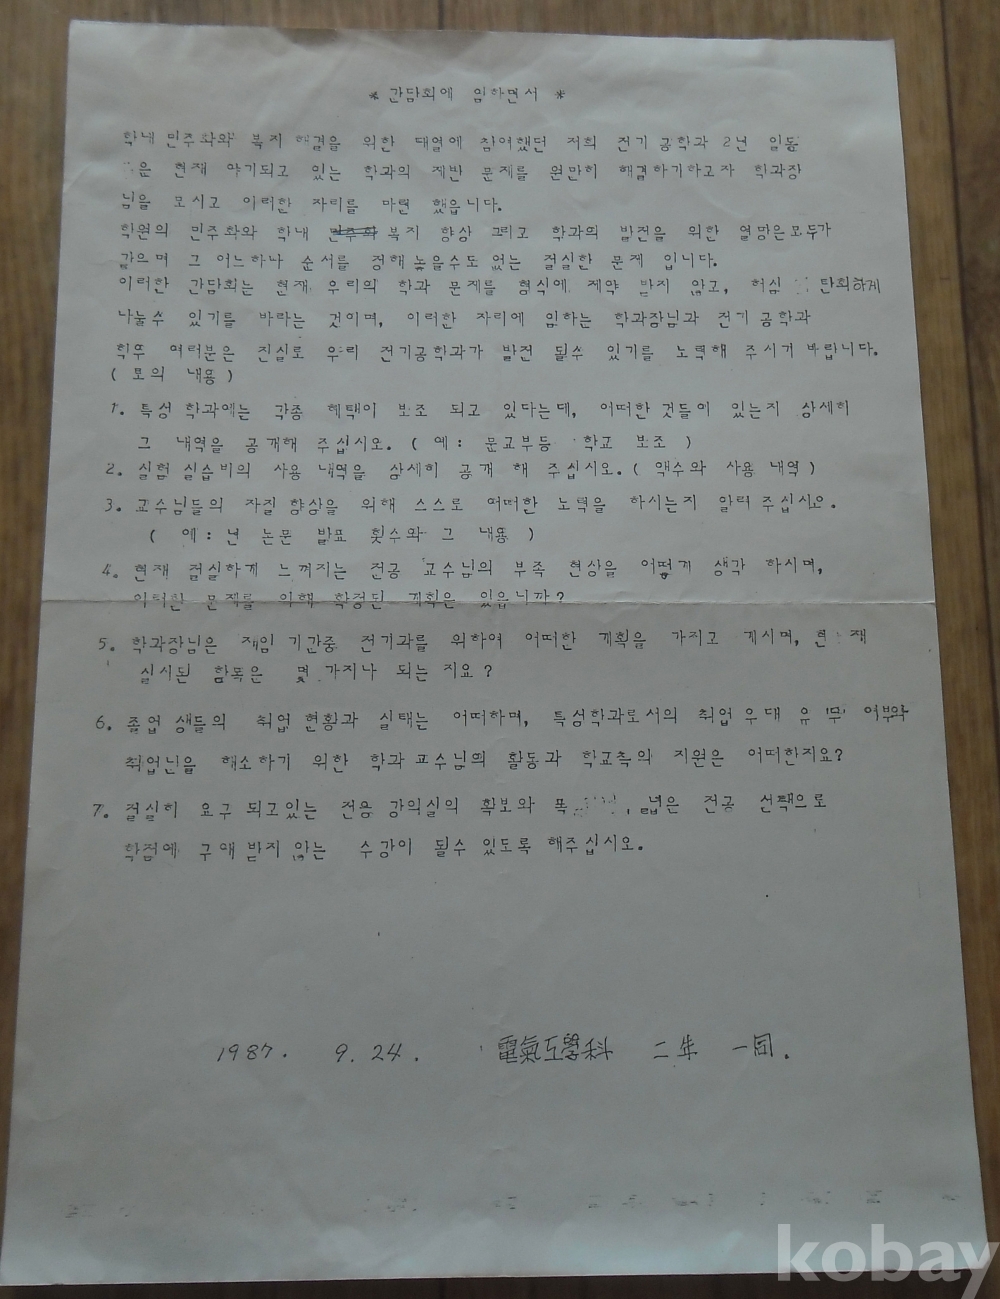 * 간담회에 임하면서 *
학내 민주화와 복지 해결을 위한 대열에 참여했던 저희 전기 공학과 2년 일동
은 현재 야기되고 있는 학과의 제반 문제를 원만히 해결하기하고자 학과장
님을 모시고 이러한 자리를 마련 했읍니다.
학원의 민주화와 학내 민주화 복지 향상 그리고 학과의 발전을 위한 열망은모두가
같으며 그 어느하나 순서를 정해 놓을수도 없는 절실한 문제 입니다.
이러한 간담회는 현재 우리의 학과 문제를 형식에 제약 받지 않고, 허심 탄회하게
나눌수 있기를 바라는 것이며, 이러한 자리에 임하는 학과장님과 전기 공학과
학우 여러분은 진실로 우리 전기공학과가 발전 될수 있기를 노력해 주시기 바랍니다.
( 토의 내용 )
1. 특성 학과에는 각종 혜택이 보조 되고 있다는데, 어떠한 것들이 있는지 상세히
그 내역을 공개해 주십시오. ( 예 : 문교부등 학교 보조 )
2. 실험 실습비의 사용 내역을 상세히 공개 해 주십시오. ( 액수와 사용 내역 )
3. 교수님들의 자질 향상을 위해 스스로 어떠한 노력을 하시는지 알려 주십시오.
( 예 : 년 논문 발표 횟수와 그 내용 )
4. 현재 절실하게 느껴지는 전공 교수님의 부족 현상을 어떻게 생각 하시며,
이러한 문제를 위해 확정된 계획은 있읍니까?
5. 학과장님은 재임 기간중 전기과를 위하여 어떠한 계획을 가지고 계시며, 현 재
실시된 항목은 몇 가지나 되는 지요?
6. 졸업 생들의 취업 현황과 실태는 어떠하며, 특성학과로서의 취업 우대 유 무 여부와
취업난을 해소하기 위한 학과 교수님의 활동과 학교측의 지원은 어떠한지요?
7. 절실히 요구 되고있는 전용 강의실의 확보와 폭 넓은 전공 선택으로
학점에 구애 받지 않는 수강이 될수 있도록 해주십시오.
1987. 9. 24. 電氣工學科 二年 一同.
kobay